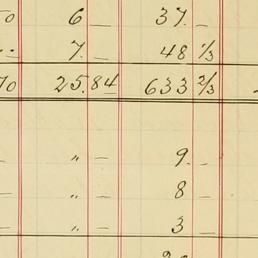 50 6 — 37. —
7. — 48 1/3
70 25.84 633 2/3
— " — 9. —
— " — 8 —
— " — 3 —